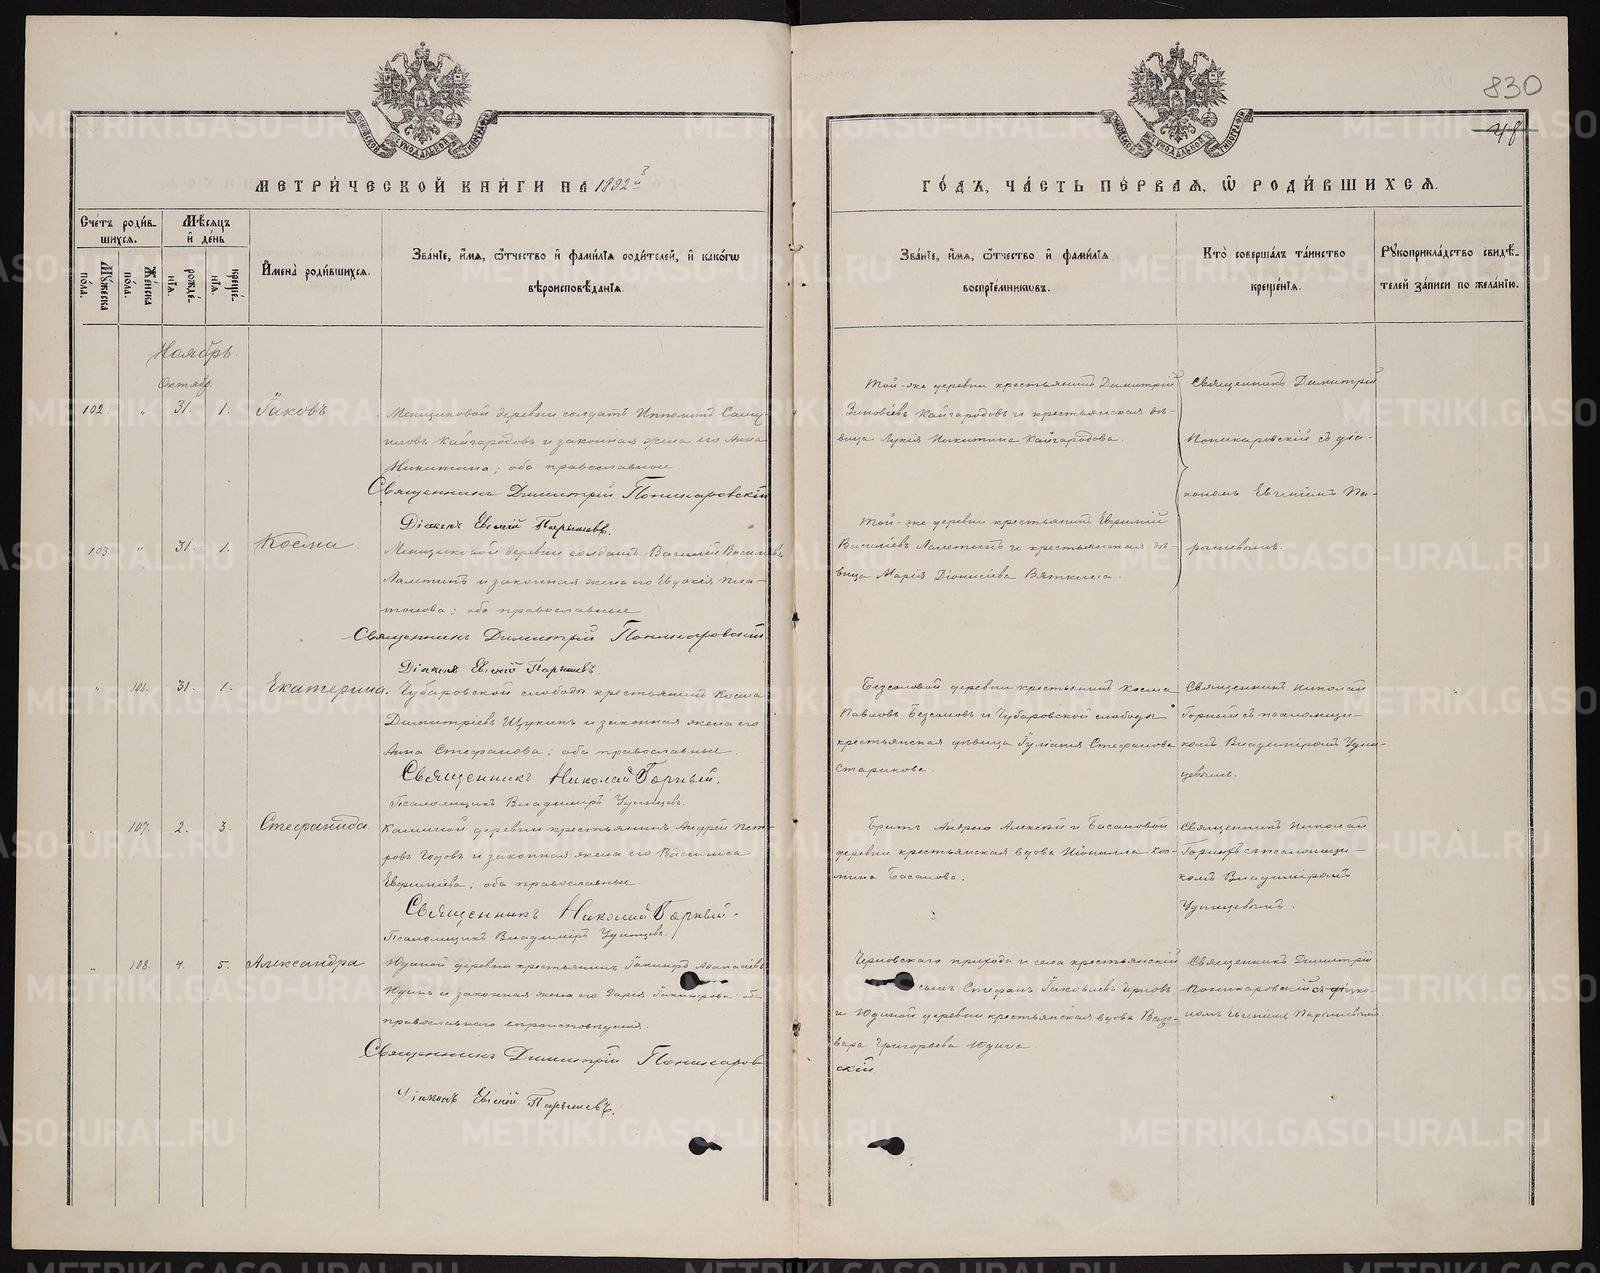 830
48
МЕТРИ́ЧЕСКОЙ КНИ́ГИ НА 1892 3 й
ГО́ДЪ, ЧА́СТЬ ПЕ́РВАЯ, Ѿ РОДИ́ВШИХСЯ.
Счетъ роди́в-
шихся.
Му́жеска по́ла.
Же́нска по́ла.
Мѣ́сяцъ и де́нь
рожде́-
нїя.
креще́-
нїя.
Имена̀ роди́вшихся.
Зва́нїе, и́мя, ѻ́тчество и фами́лїя роди́телей, и како́гѡ
вѣроисповѣ́данїя.
Зва́нїе, и́мя, ѻ́тчество и фами́лїя
воспрїе́мникѡвъ.
Кто̀ соверша́лъ та́инство
креще́нїя.
Рꙋкоприкла́дство свидѣ́-
телей за́писи по жела́нїю.
Ноябрь.
Октябр.
102. " 31. 1. Іаковъ
Менщиковой деревни солдатъ Ипполитъ Саму
иловъ Кайгародовъ и законная жена его Анна
Никитина; оба православные.
Священникъ Димитрій Пономаровскій
Діаконъ Евгеній Парышевъ.
Той-же деревни крестьянинъ Димитрій
Зиновіевъ Кайгародовъ и крестьянская дѣ-
вица Лукія Никитина Кайгародова.
Священникъ Димитрій
Пономаровскій съ діа-
кономъ Евгеніемъ Па-
рышевымъ.
103. " 31. 1. Косма.
Менщиковой деревни солдатъ Василій Василіевъ
Лаптинъ и законная жена его Евдокія Пла-
тонова; оба православные
Священникъ Димитрій Пономаровскій
Діаконъ Евгеній Парышевъ.
Той-же деревни крестьянинъ Евфимій
Василіевъ Лаптинъ и крестьянская дѣ-
вица Марія Діонисіева Вяткина.
" 106. 31. 1. Екатерина.
Чубаровской слободы крестьянинъ Косма
Димитріевъ Щукинъ и законная жена его
Анна Стефанова; оба православные.
Священникъ Николай Горный.
Псаломщикъ Владиміръ Удинцевъ.
Безсоновой деревни крестьянинъ Косма
Павловъ Безсоновъ и Чубаровской слободы
крестьянская дѣвица Іуліанія Стефанова
Старикова.
Священникъ Николай
Горный съ псаломщи-
комъ Владиміромъ Удин-
цевымъ.
" 107. 2. 3. Стефанида.
деревни крестьянинъ Андрей Пет-
ровъ и законная жена его Василиса
Евфиміева; оба православные.
Священникъ Николай Горный.
Псаломщикъ Владиміръ Удинцевъ.
Братъ Андрея Алексій и Басановой
деревни крестьянская вдова Іюнилла Кос-
мина Басанова.
Священникъ Николай
Горный съ псаломщи-
комъ Владиміромъ
Удинцевымъ.
" 108. 4. 5. Александра
Юдиной деревни крестьянинъ Іакинфъ Аѳанасіевъ
Юдинъ и законная жена его Дарія Іакинфова; оба
православнаго вѣроисповѣданія.
Священникъ Димитрій Пономаров
скій
Діаконъ Евгеній Парышевъ.
Черновскаго прихода и села крестьянскій
сынъ Стефанъ Іаковлевъ Черновъ
и Юдиной деревни крестьянская вдова Вар-
вара Григорьева Юдина
Священникъ Димитрій
Пономаровскій съ діако-
номъ Евгеніемъ Парышевымъ.
METRIKI.GASO-URAL.RU